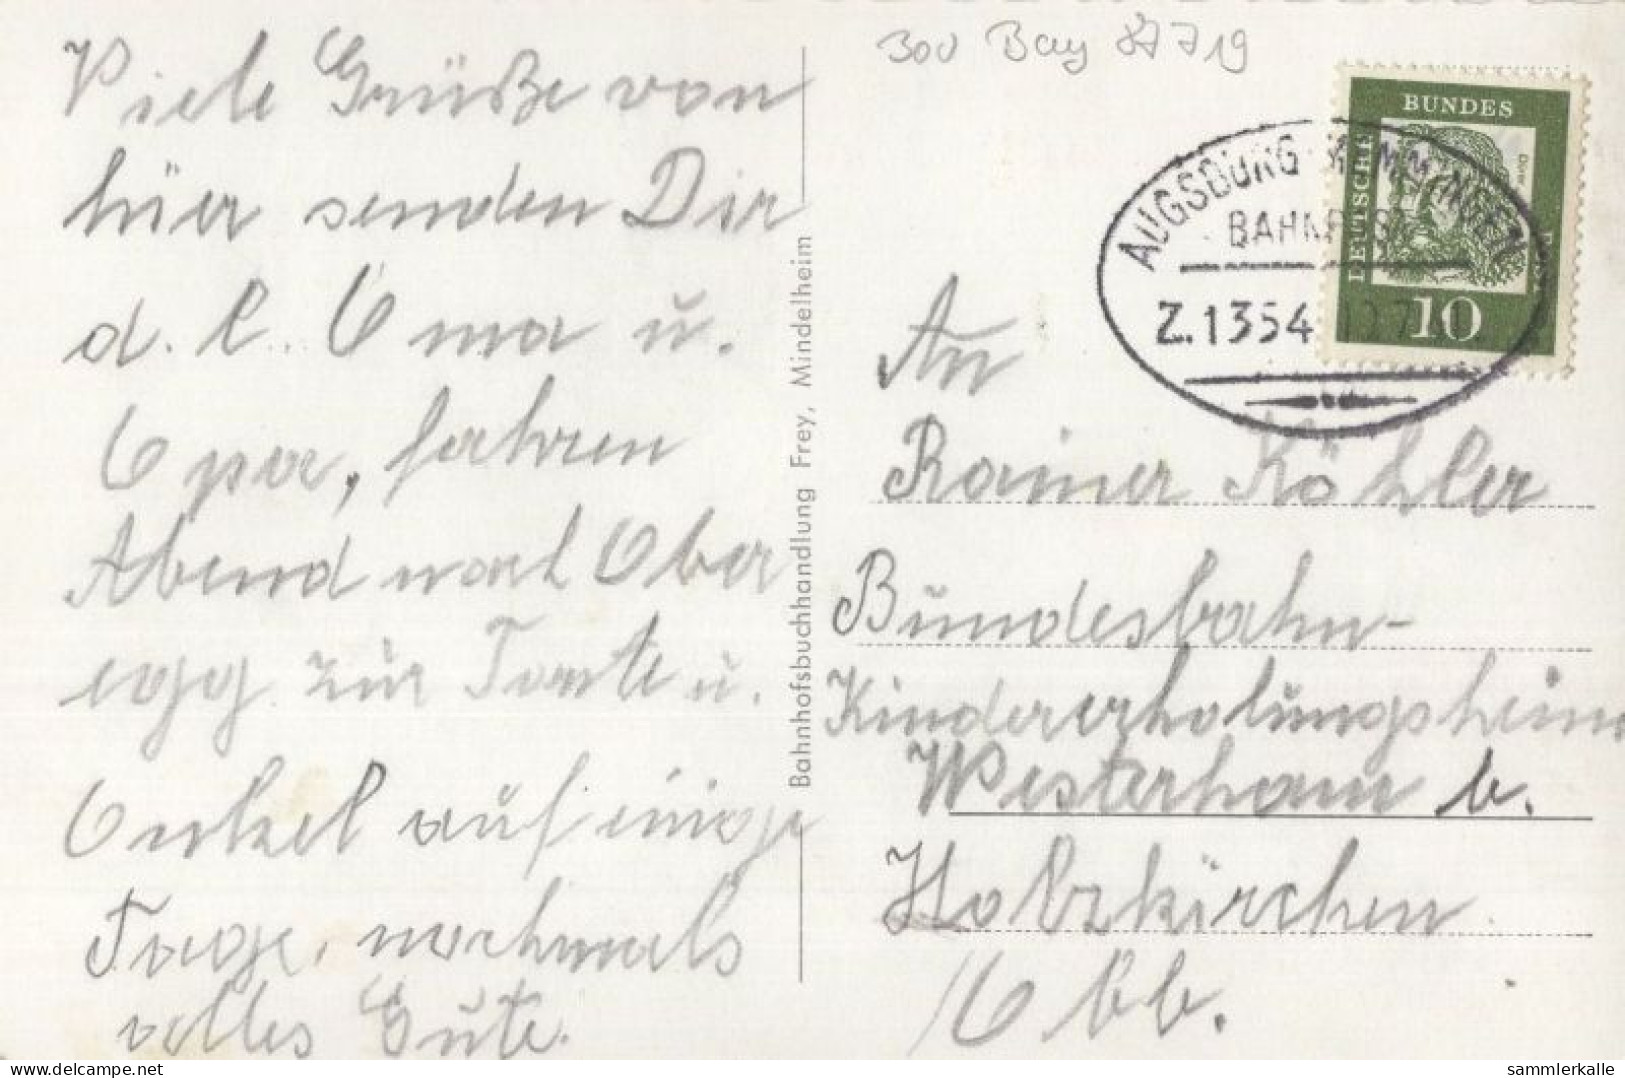 Viele Grüße von
hier senden Dir
d. l. Oma u.
Opa, fahren
Abend nach Ober
egg zur Tante u.
Onkel auf einige
Tage, nochmals
alles Gute.
Bahnhofsbuchhandlung Frey, Mindelheim
300 Bay 87719
BUNDES
DEUTSCHE
10
AUGSBURG - MEMMINGEN
BAHNPOST
Z.1354
An
Rainer Köhler
Bundesbahn-
Kindererholungsheim
Westerham b.
Holzkirchen
/Obb.
www.delcampe.net
sammlerkalle